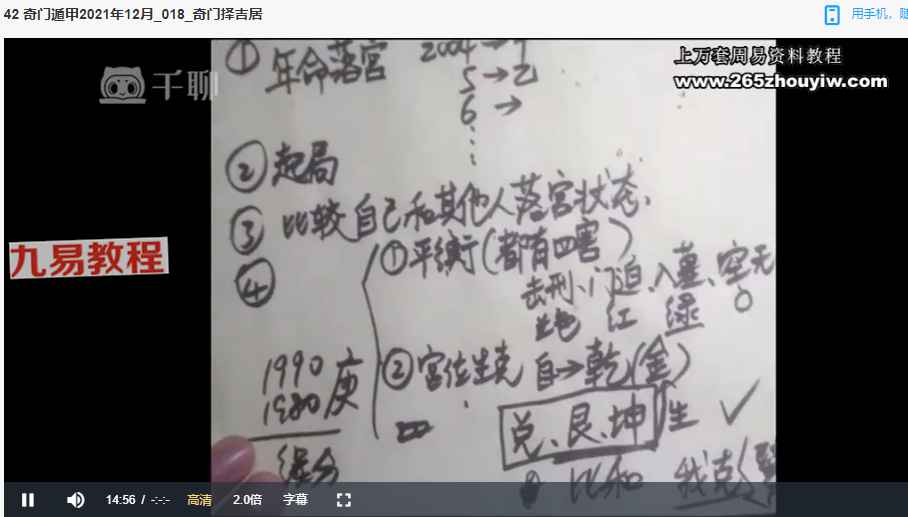 42 奇门遁甲2021年12月_018_奇门择吉居
用手机，随
千聊
上万套周易资料教程
www.265zhouyiw.com
九易教程
① 年命落宫
2004→
5→乙
6→
② 起局
③ 比较自己和其他人落宫状态、
④
①平衡(都有四害)
击刑、门迫、入墓、空无
红 绿 ○
1990 庚
1980
②宫位生克 自→乾(金)
兑、艮、坤 生 ✓
比和 我克
14:56 / -:-:-
高清
2.0倍
字幕